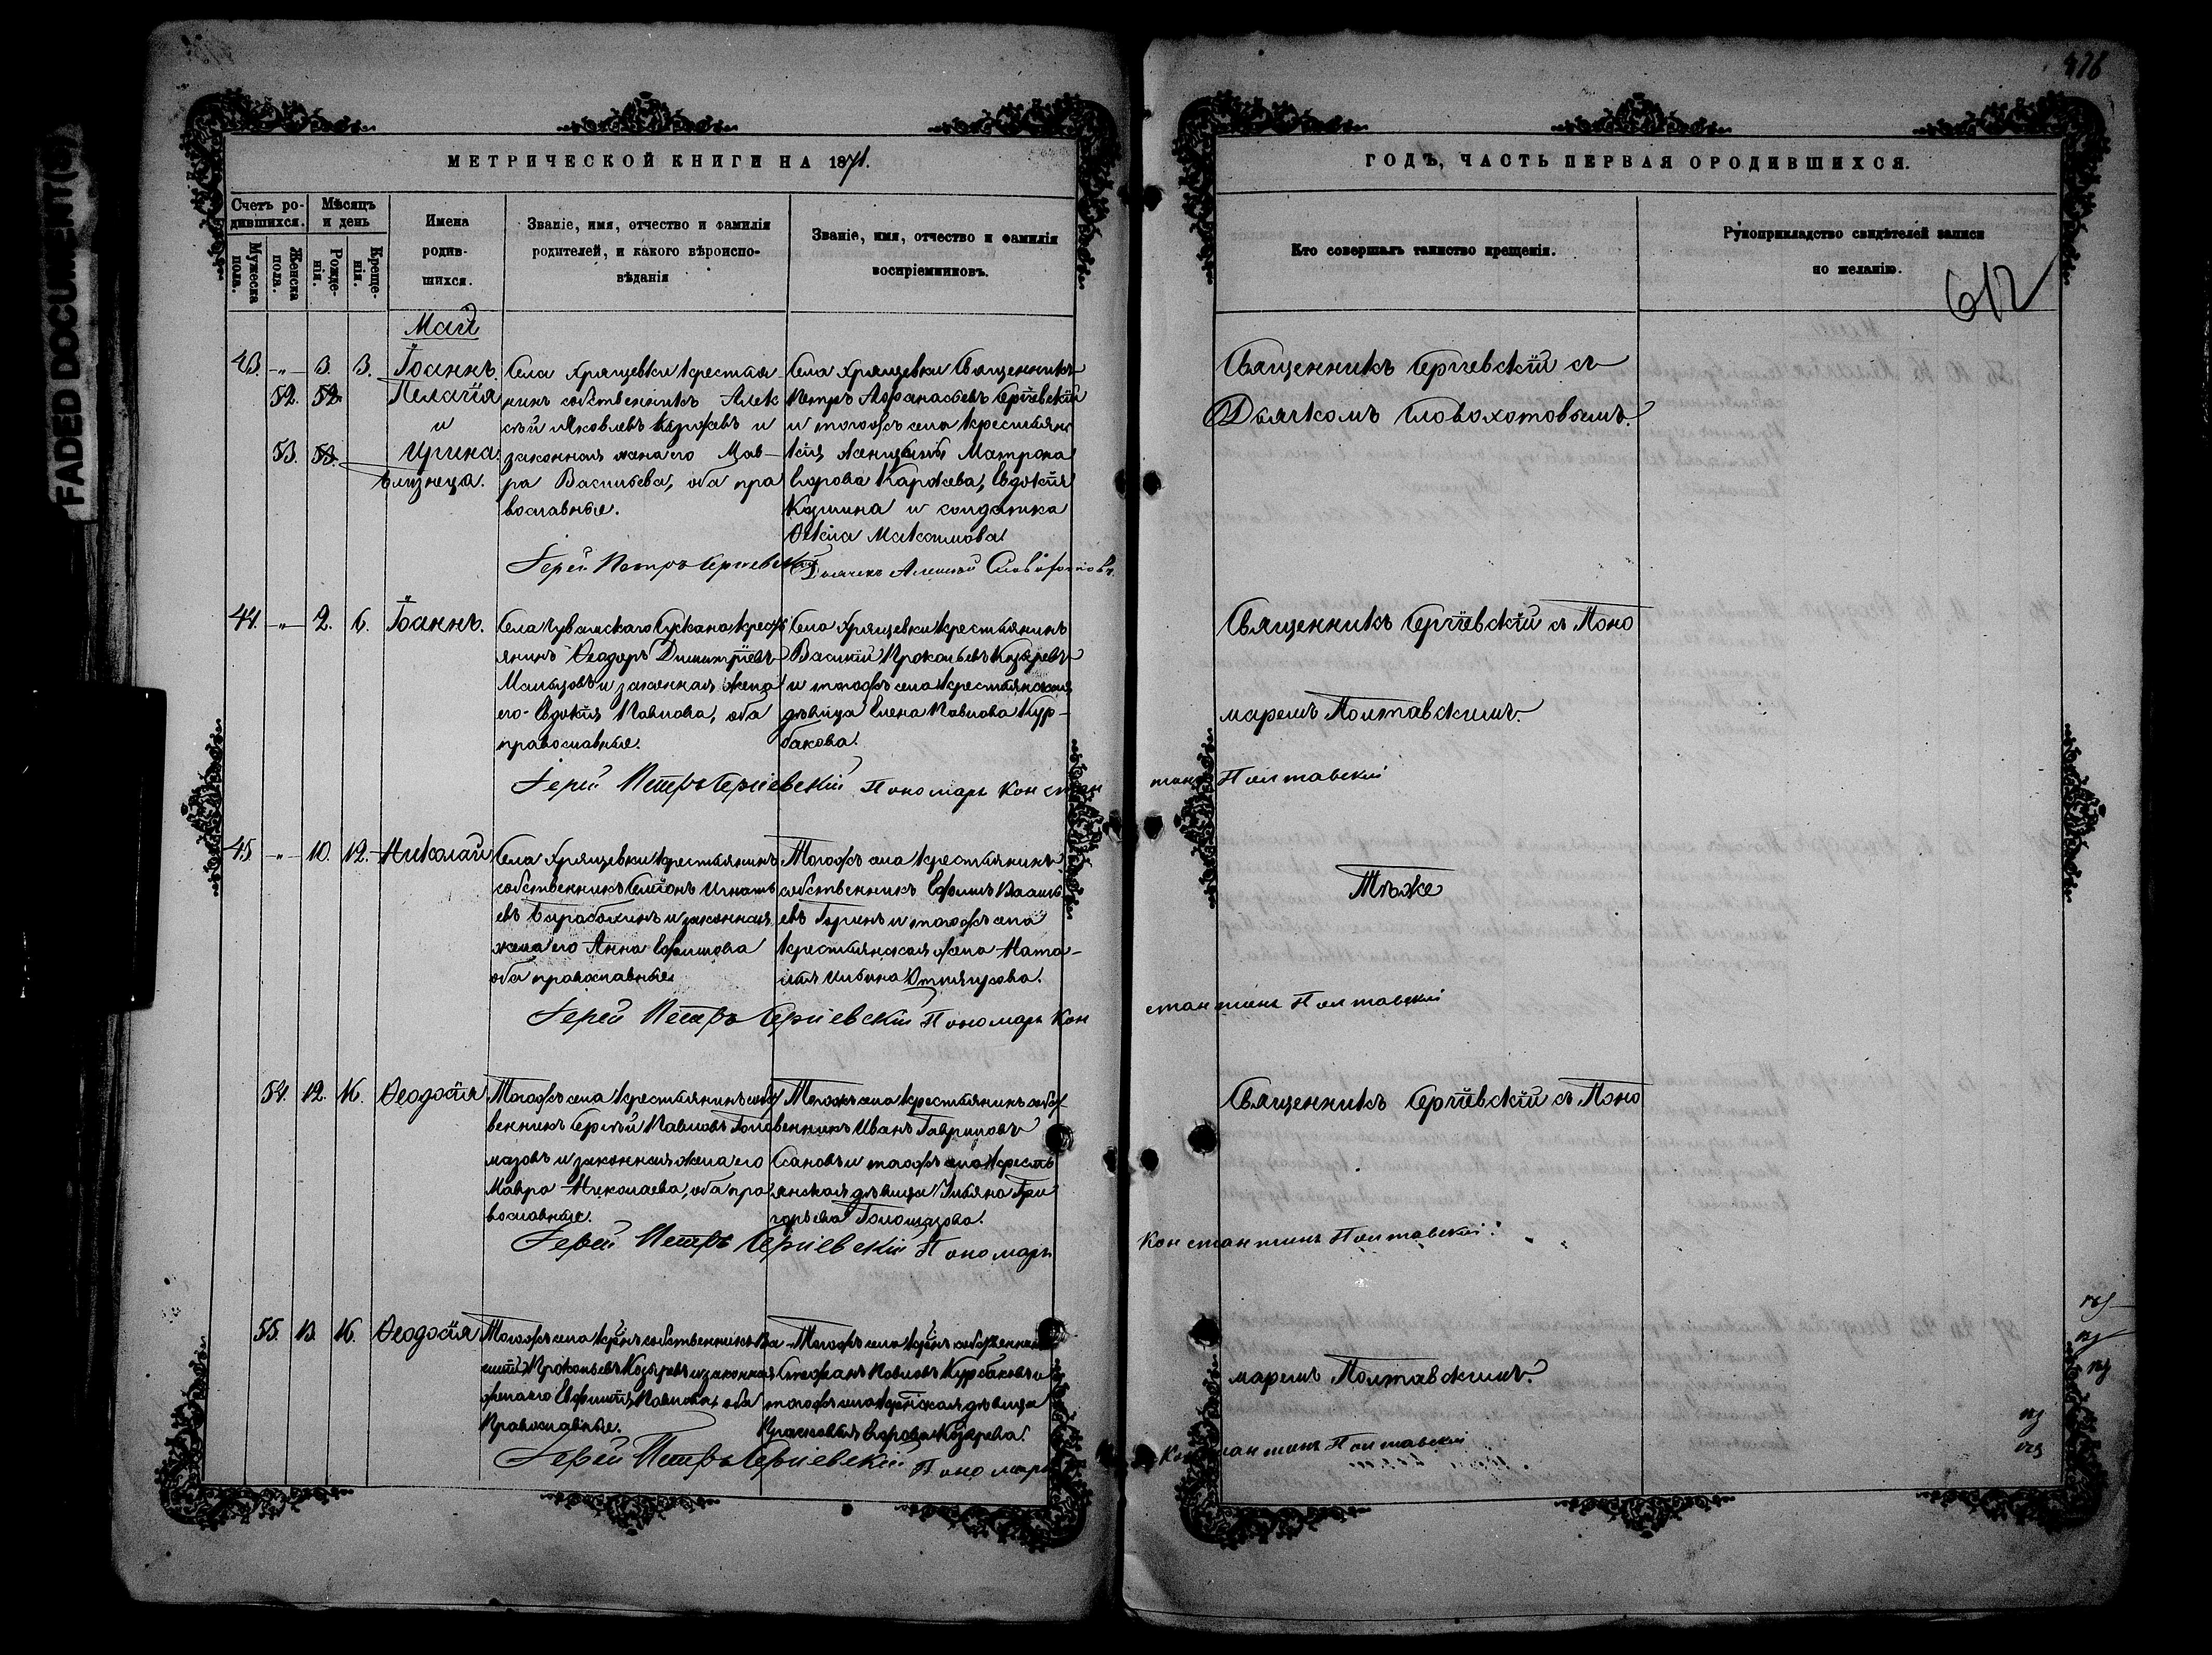 FADED DOCUMENT(S)
476
МЕТРИЧЕСКОЙ КНИГИ НА 1871.
Счетъ родившихся.
Мѣсяцъ и день
Мужеска пола.
Женска пола.
Рожденія.
Крещенія.
Имена
родив-
шихся.
Званіе, имя, отчество и фамилія
родителей, и какого вѣроиспо-
вѣданія
Званіе, имя, отчество и фамилія
воспріемниковъ.
Май
43. -"- 3. 3. Іоаннъ.
52. Пелагія
и
53. Ирина
близнеца.
Села Хрящевки крестья-
нинъ собственникъ Алек
сѣй Яковлевъ и
законная жена его Мав-
ра Васильева, оба пра
вославные.
Села Хрящевки Священникъ
Петръ Афанасьевъ Сергіевскій
и тогожъ села крестьянс
кія Матрона
Егорова Каржева, Евдокія
Козмина и солдатка
Максимова.
Іерей Петръ Сергіевскій
Дьячекъ Алексѣй Словохотовъ.
44. -"- 2. 6. Іоаннъ.
Села Чувашскаго Сускана крест
янинъ Ѳеодоръ Димитріевъ
Мальцовъ и законная жена
его Евдокія Павлова, оба
православные.
Села Хрящевки крестьянинъ
Василій Прокопьевъ Козыревъ
и тогожъ села крестьянская
дѣвица Елена Павлова Кур-
бакова.
Іерей Петръ Сергіевскій Пономарь Констан
45 -"- 10. 12. Николай
Села Хрящевки крестьянинъ
собственникъ Семіонъ Игнать
евъ и законная
жена его Анна Ефимова
оба православные
Тогожъ села крестьянинъ
собственникъ Ефимъ Василь
евъ и тогожъ села
крестьянская жена Ната-
лія
Іерей Петръ Сергіевскій Пономарь Кон
54. 12. 16. Ѳеодосія
Тогожъ села крестьянинъ собст
венникъ Сергѣй Павловъ Голо
мазовъ и законная жена его
Мавра Николаева, оба пра
вославные.
Тогожъ села крестьянинъ собст
венникъ Иванъ Гавриловъ
и тогожъ села кресть
янская дѣвица Ульяна Гри
горьева Голомазова.
Іерей Петръ Сергіевскій Пономарь
55. 13. 16. Ѳеодосія
Тогожъ села кр-нъ собственникъ Ва
силій Прокопьевъ Козыревъ и законная
жена его Евфимія Павлова, оба
Православные.
Тогожъ села кр-нъ собственникъ
Стефанъ Павловъ Курбаковъ и
тогожъ села дѣвица
Прасковья Егорова Козырева.
Іерей Петръ Сергіевскій Пономарь
ГОДЪ, ЧАСТЬ ПЕРВАЯ О РОДИВШИХСЯ.
Кто совершалъ таинство крещенія.
Рукоприкладство свидѣтелей записи
по желанію.
612
Священникъ Сергіевскій съ
Дьячкомъ Словохотовымъ.
Священникъ Сергіевскій съ Поно
маремъ Полтавскимъ.
тинъ Полтавскій
Тѣже
стантинъ Полтавскій
Священникъ Сергіевскій съ Поно
Константинъ Полтавскій.
маремъ Полтавскимъ.
Константинъ Полтавскій